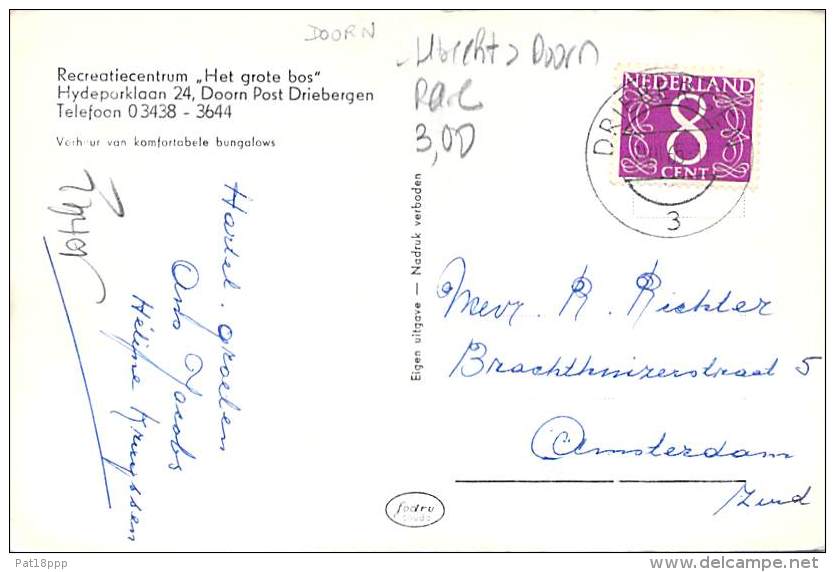 DOORN
Utrecht > Doorn
3,00
Recreatiecentrum „Het grote bos"
Hydeparklaan 24, Doorn Post Driebergen
Telefoon 03438 - 3644
Verhuur van komfortabele bungalows
NEDERLAND
8
CENT
3
Hartel. groeten
Ans Jacobs
Hélène Kruyssen
Eigen uitgave — Nadruk verboden
Mevr. R. Richter
Brachthuizerstraat 5
Amsterdam
Zuid
fodru
Pat18ppp
www.delcampe.net